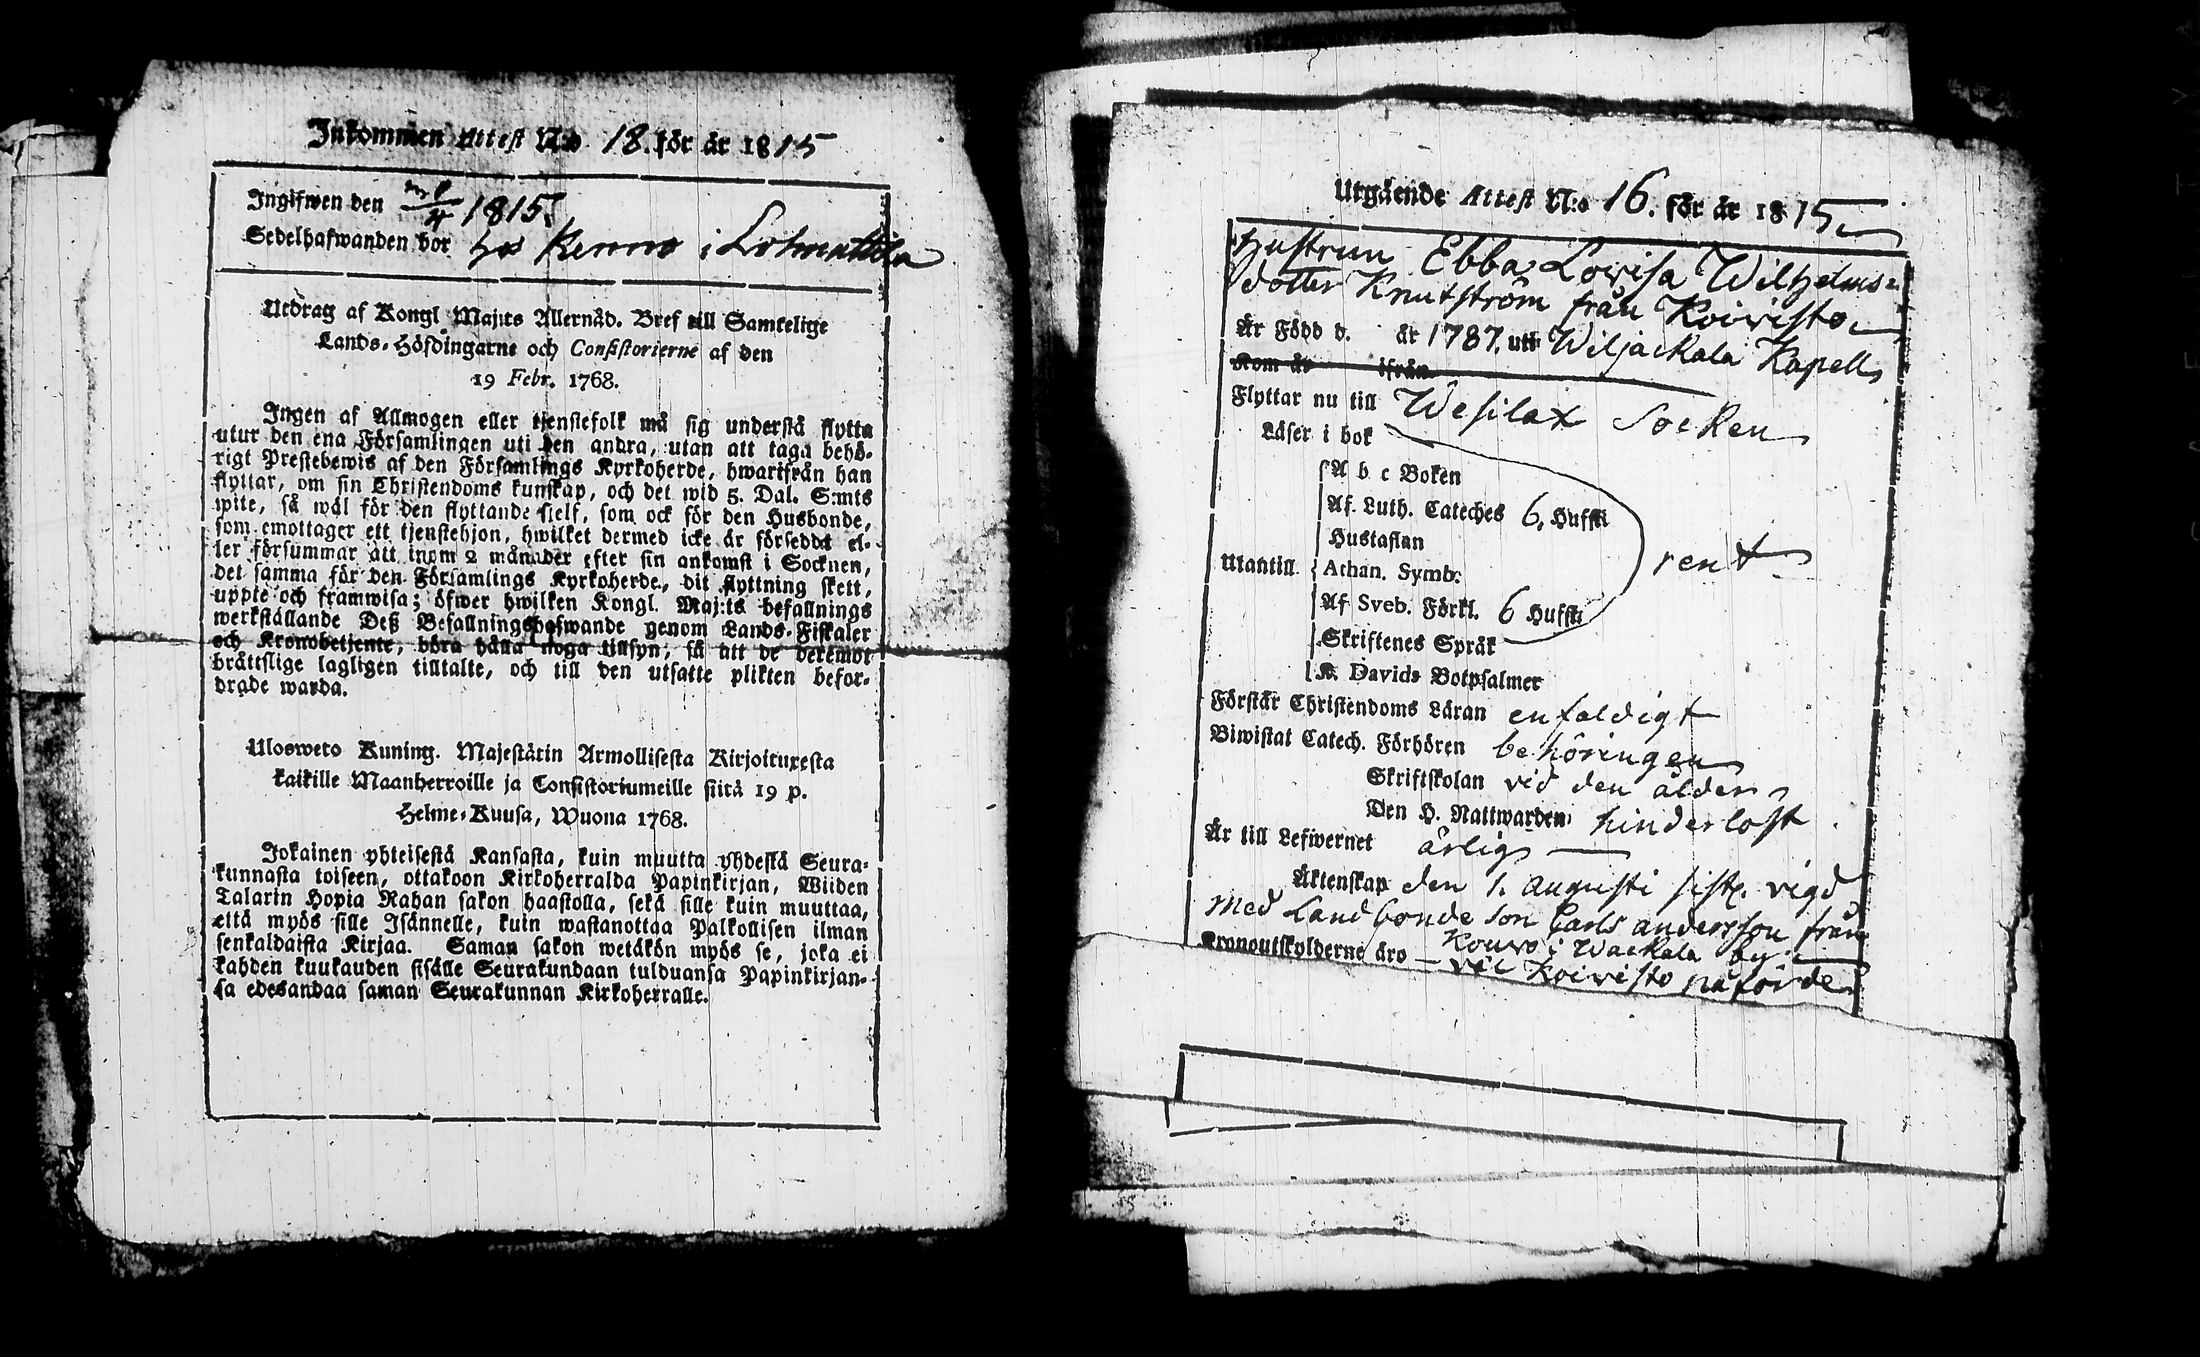 Inkommen Attest N:o 18. för år 1815
Ingifwen den 1815.
Sedelhafwanden bor hos i
Utdrag af Kongl Maj:ts Allernåd. Bref till Samtelige
Lands-Höfdingarne och Consistorierne af den
19 Febr. 1768.
Ingen af Allmogen eller tjenstefolk må sig understå flytta
utur den ena Församlingen uti den andra, utan att taga behö-
rigt Prestebewis af den Församlings Kyrkoherde, hwarifrån han
flyttar, om sin Christendoms kunskap, och det wid 5. Dal. S:mts
wite, så wäl för den flyttande sielf, som ock för den Husbonde,
som emottager ett tjenstehjon, hwilket dermed icke är förseddt el-
ler försummar att inom 2 månader efter sin ankomst i Socknen,
det samma för den Församlings Kyrkoherde, dit flyttning skett,
uppte och framwisa; öfwer hwilken Kongl. Maj:ts befallnings
werkställande Deß Befallningshafwande genom Lands-Fiskaler
och Kronobetjente, böra hålla noga tillsyn, så att de deremot
bråttslige lagligen tilltalte, och till den utsatte plikten befor-
drade warda.
Ulosweto Kuning. Majestätin Armollisesta Kirjoituxesta
kaikille Maanherroille ja Consistoriumeille siitä 19 p.
Helme-Kuusa, Wuona 1768.
Jokainen yhteisestä Kansasta, kuin muutta yhdestä Seura-
kunnasta toiseen, ottakoon Kirkoherralda Papinkirjan, Wiiden
Talarin Hopia Rahan sakon haastolla, sekä sille kuin muuttaa,
että myös sille Isännelle, kuin wastanottaa Palkollisen ilman
senkaldaista Kirjaa. Saman sakon wetäkön myös se, joka ei
kahden kuukauden sisälle Seurakundaan tulduansa Papinkirjan-
sa edesandaa saman Seurakunnan Kirkoherralle.
Utgående Attest N:o 16. för år 1815
Hustrun Ebba Lovisa Wilhelms-
dotter Knutström från Koivisto
Är Född d. år 1787. uti Wiljackala Kapell
Kom år ifrån
Flyttar nu till Wesilax Socken
Läser i bok
A b c Boken
Af Luth. Cateches 6. Huffst
Hustaflan
Utantill Athan. Symb. rent
Af Sveb. Förkl. 6 Huffst
Skriftenes Språk
K. Davids Botpsalmer
Förstår Christendoms Läran enfaldigt
Biwistat Catech. Förhören behöringen
Skriftskolan vid den ålder
Den H. Nattwarden hinderlöst
Är till Lefwernet ärlig
Äktenskap den 1. augusti sistl. vigd
med Landbonde son Carls andersson från
Kouvo i Wackala by
Kronoutskylderne äro vil Koivisto påförde